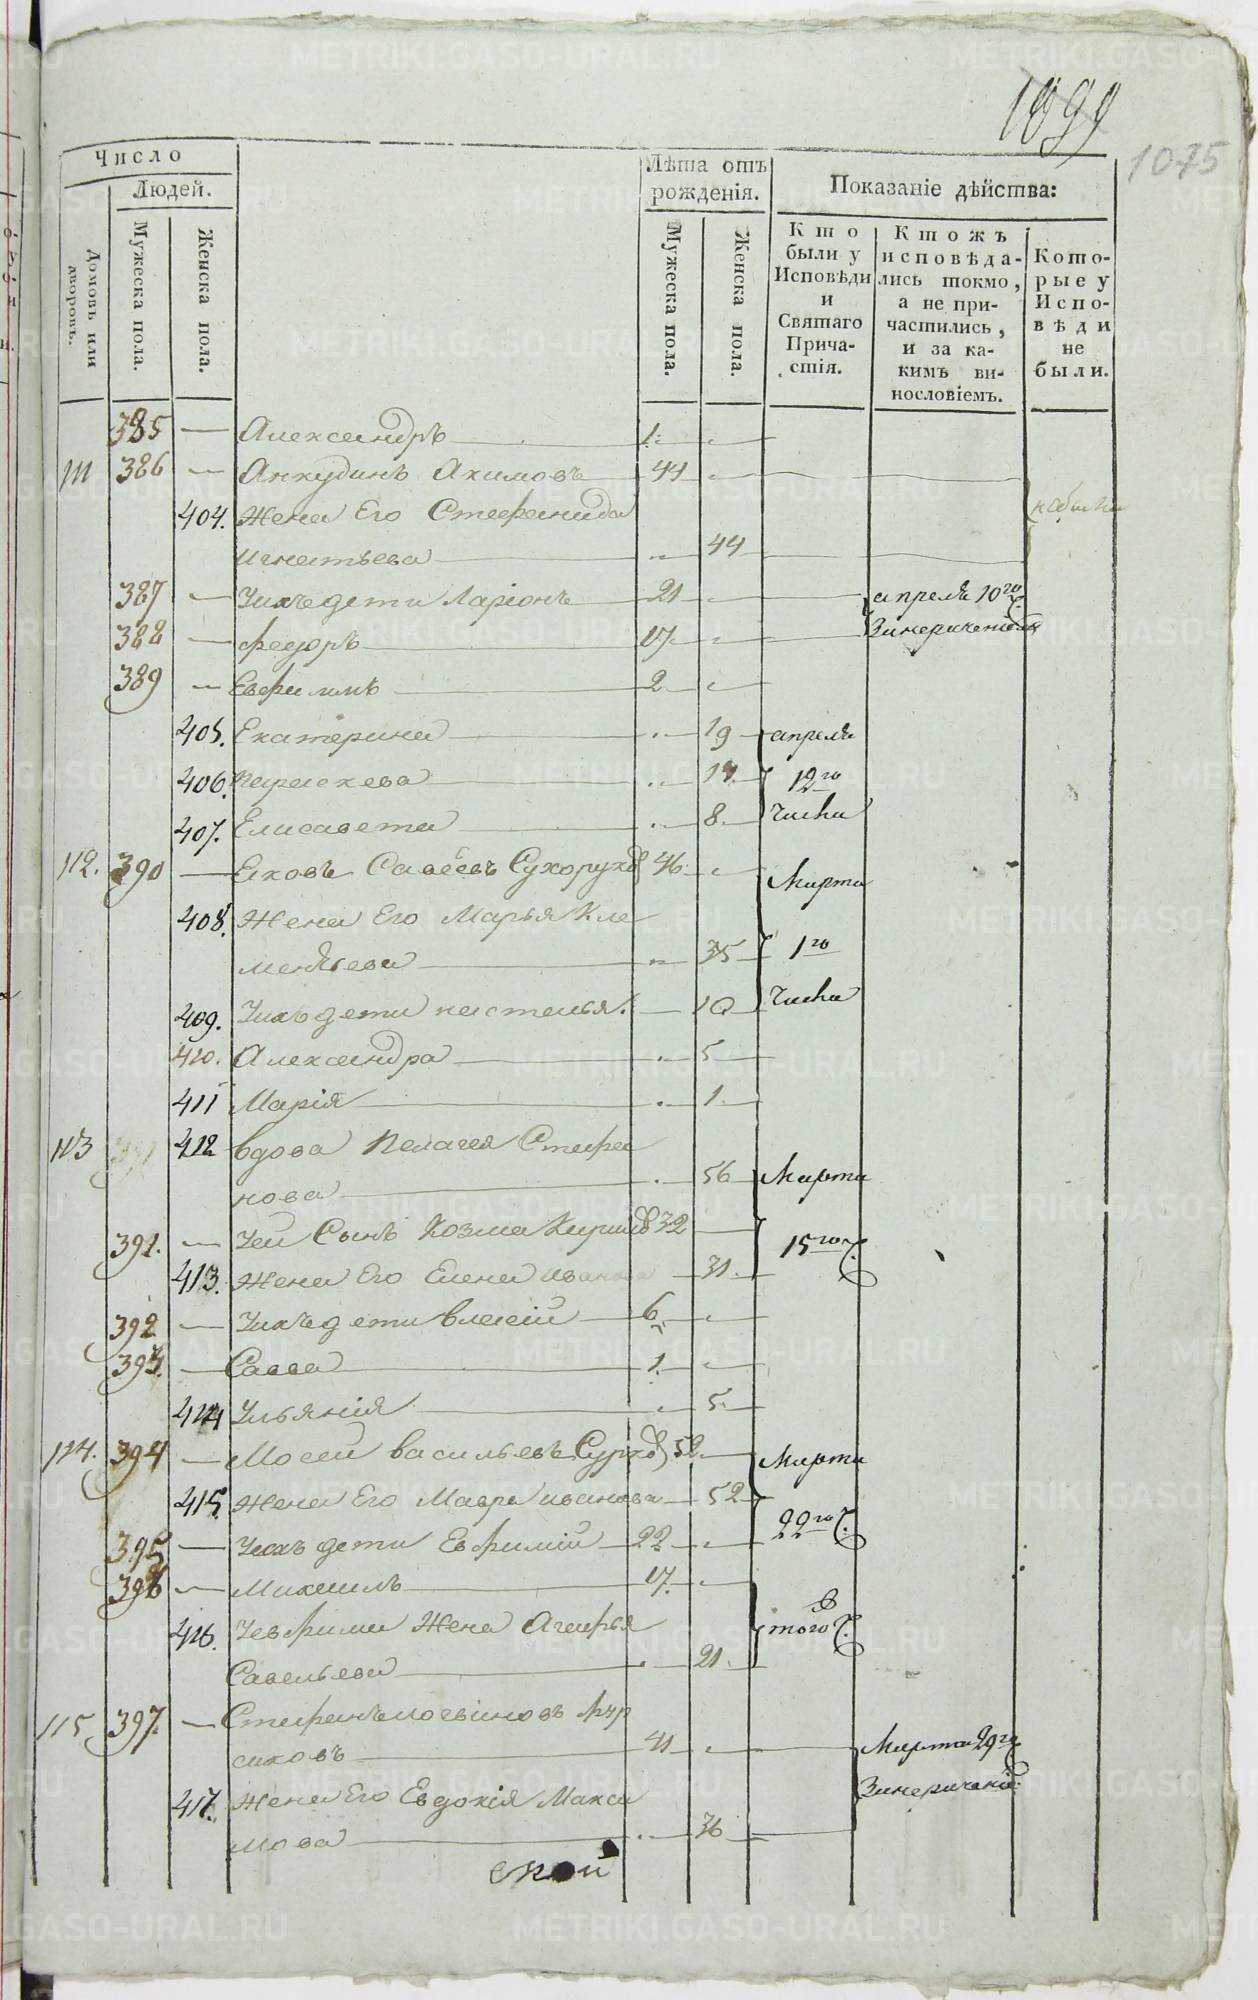 1075
Число
Людей.
Домовъ или дворовъ.
Мужеска пола.
Женска пола.
Лѣта отъ рожденія.
Мужеска пола.
Женска пола.
Показаніе дѣйства:
Кто были у Исповѣди и Святаго Прича-стія.
Ктожъ исповѣда-лись токмо, а не при-частились, и за ка-кимъ ви-нословіемъ.
Кото-рые у Испо-вѣди не были.
385 — Александръ — 1.
111 386 — Анкудинъ Акимовъ — 44
404. Жена Его Стефанида
Игнатьева — 44
небыли
387 — Уихъ дети Ларіонъ — 21 — апреля 10го
388 — Федоръ — 17 —
389 — Евфимъ — 2
405. Екатерина — 19 апреля
406. Параскева — 12го
407. Елисавета — 8. числа
112. 390 — Яковъ Савеевъ Сухорук 46 Марта
408. Жена Его Марья Кле
ментьева — 35 1го
409. Уихъ дети настасья — 10 числа
410. Александра — 5
411 Марія — 1.
113 412 вдова Пелагея Стефа
нова — 56 Марта
391. — Уей Сынъ Козма Кирилов 32
15го
413. Жена Его Елена Иванова 31.
392. — Уихъ дети Алексій — 6
393. — Савва — 1.
414 Ульянія — 5.
114. 394 — Мосей Васильевъ 52 Марта
415. Жена Его Мавра Иванова 52
22го
395 — Уихъ дети Евфимій — 22
396 — Михаилъ — 17.
416. Уевфима Жена Агафья
того
Савельева — 21.
115 397. — Стефанъ
сиковъ — 41 Марта 29го
417. Жена Его Евдокія Макси
мова — 36
ской
METRIKI.GASO-URAL.RU